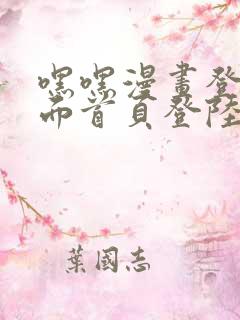 嘿嘿漫畫登
而首頁登陸
葉國志